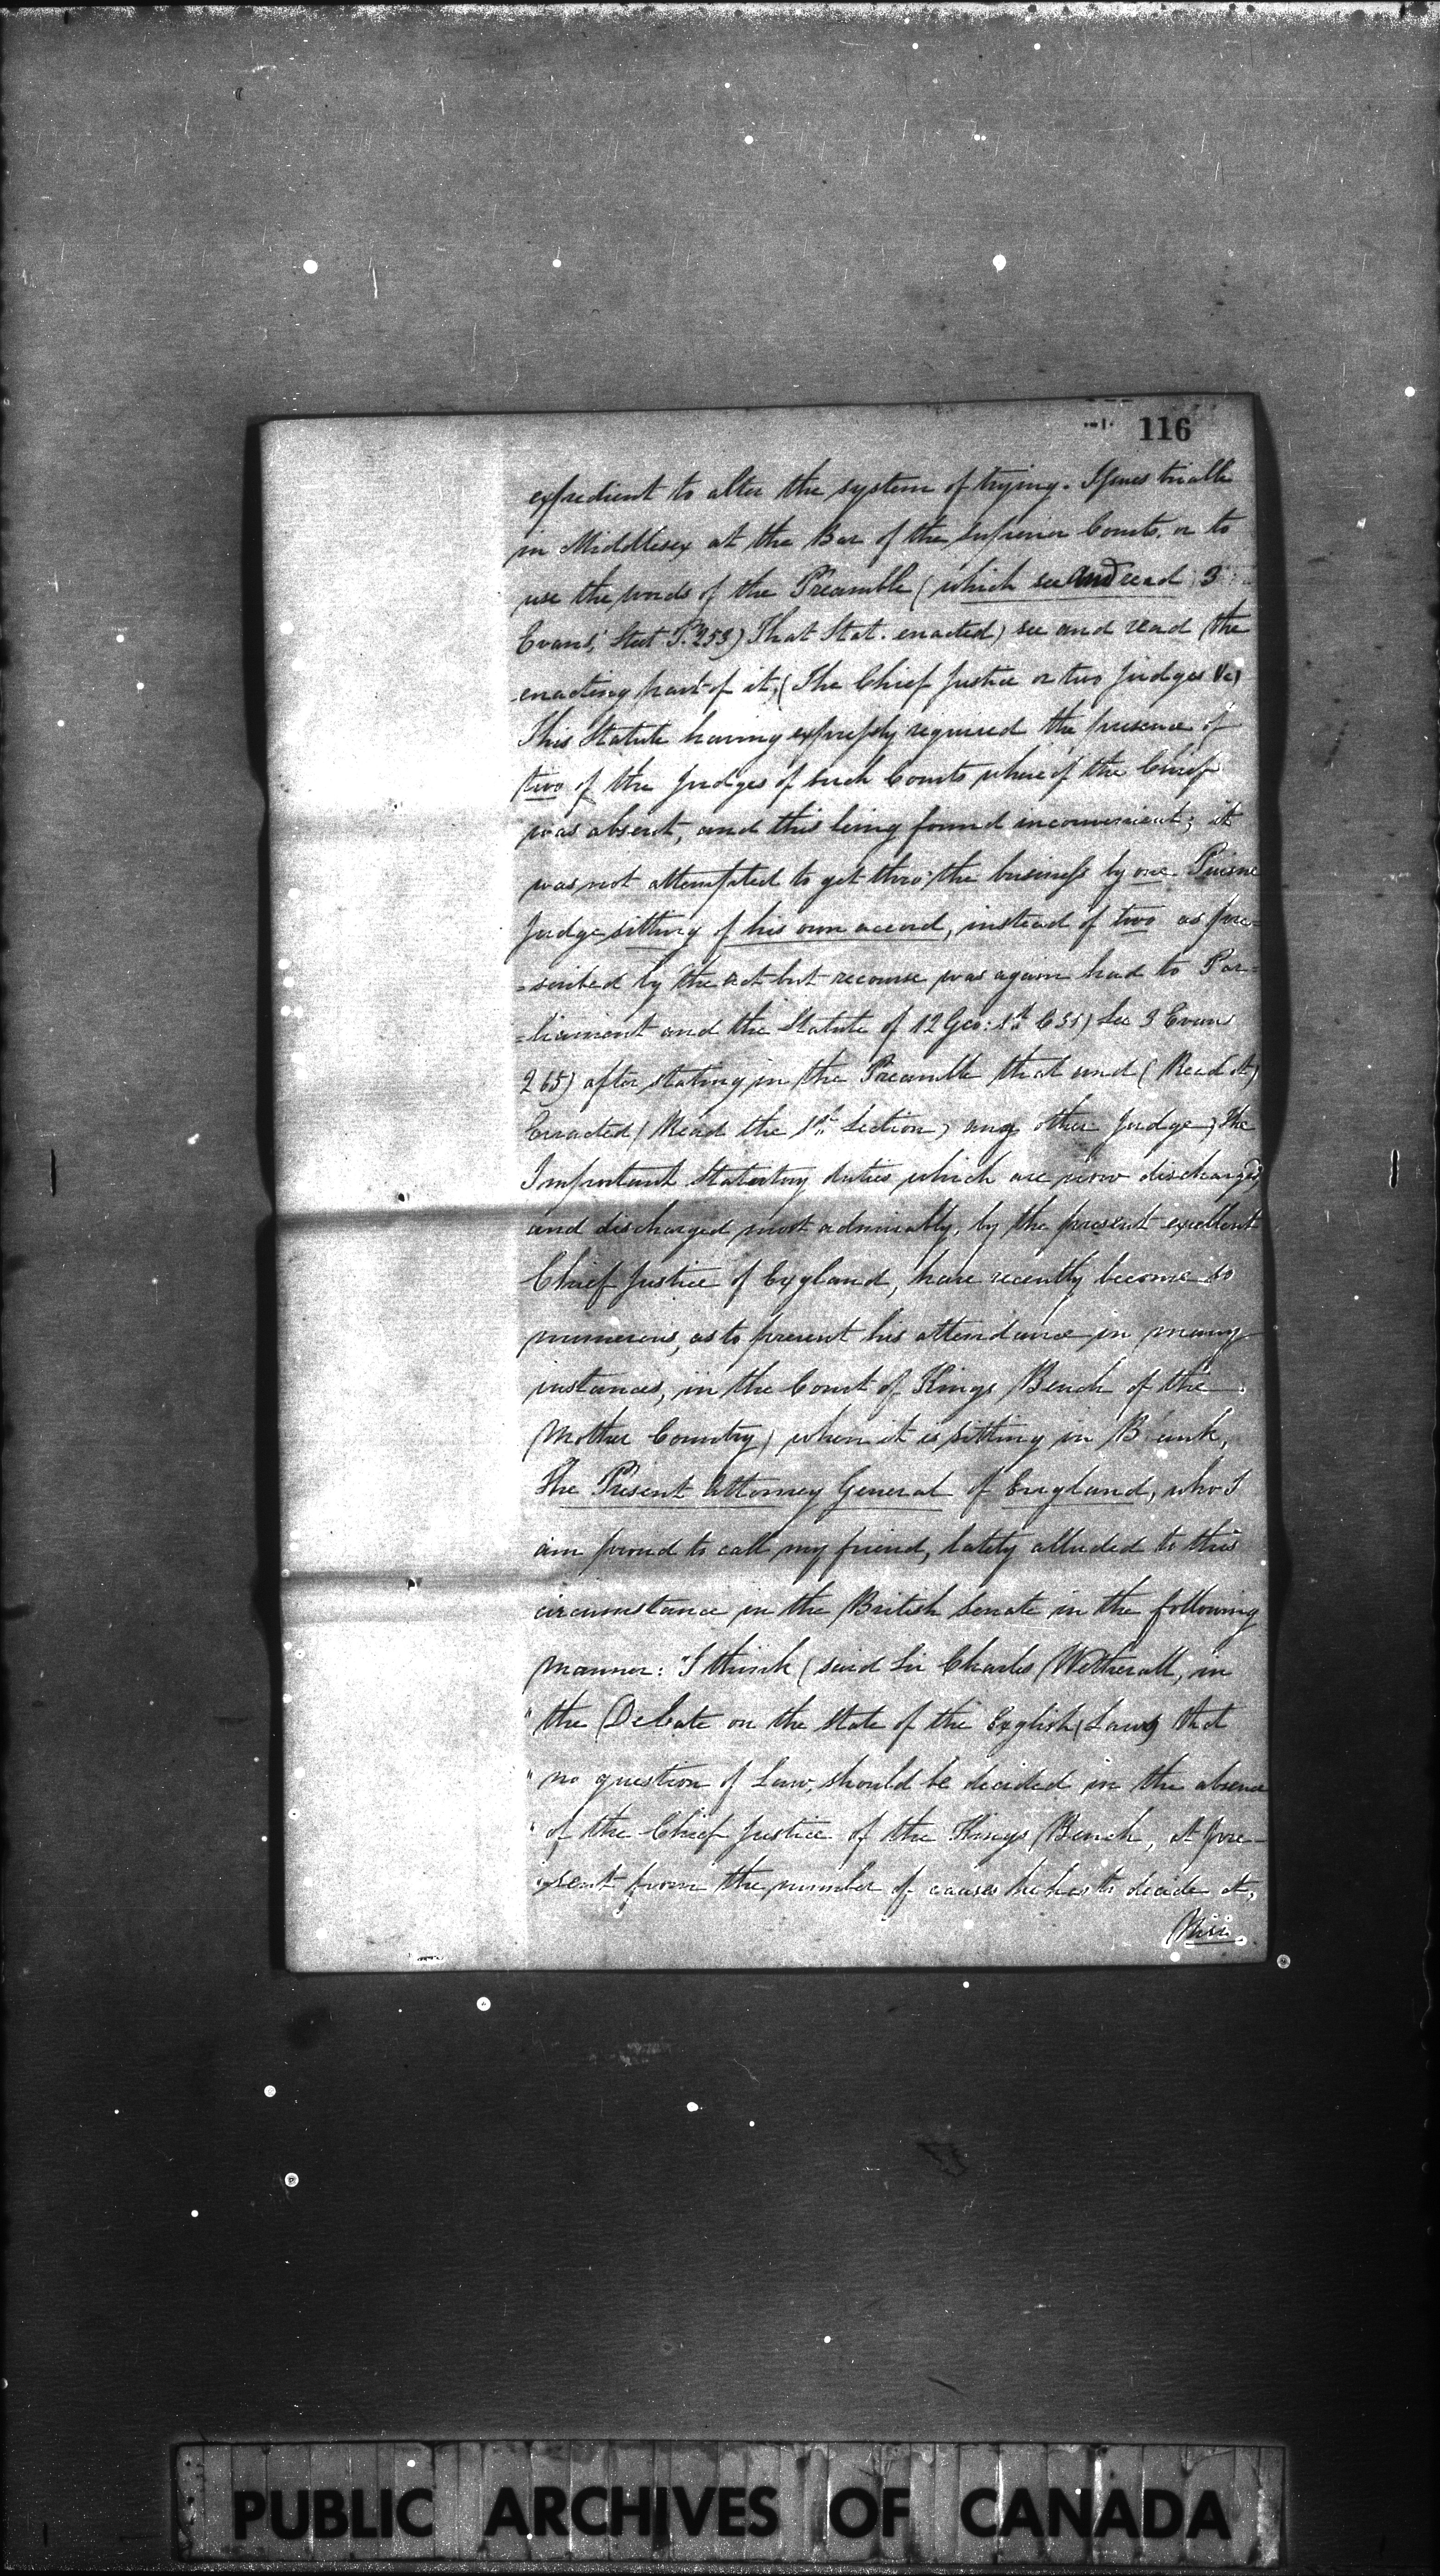 116
expedient to alter the system of trying. Issues triable
in Middlesex at the Bar of the Superior Courts, or to
use the words of the Preamble (which see and read 3
Evans' Stat P. 253) That Stat. enacted) see and read (the
enacting part of it. (The Chief Justice or two Judges &c)
This Statute having expressly required the presence of
two of the Judges of such Courts where if the Chief
was absent, and this being found inconvenient; it
was not attempted to get thro' the business by one Puisne
Judge sitting of his own accord, instead of two as pre-
=scribed by the act but recourse was again had to Par=
=liament and the Statute of 12 Geo: 1st C 31) See 3 Evans
265) after stating in the Preamble that and (Read it)
Enacted (Read the 1st Section) any other Judge) The
Important Statutory duties which are now discharged
and discharged most admirably, by the present excellent
Chief Justice of England, have recently become so
numerous, as to prevent his attendance in many
instances, in the Court of Kings Bench of the
Mother Country) when it is sitting in Bank,
The Present Attorney General of England, who I
am proud to call my friend, lately alluded to this
circumstance in the British Senate in the following
manner: "I think (said Sir Charles Wetherall, in
" the Debate on the state of the English Law) that
" no question of Law, should be decided in the absence
" of the Chief Justice of the Kings Bench, at pre-
"sent from the number of causes he has to decide at,
Nisi.
PUBLIC ARCHIVES OF CANADA